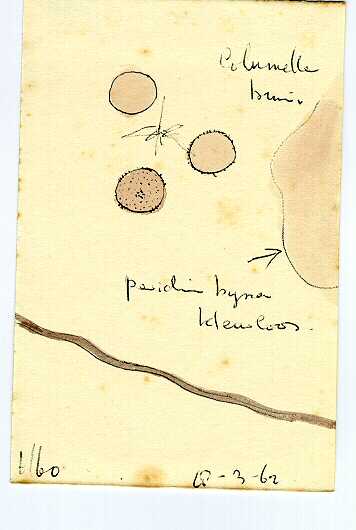 Columella
bruin
peridium bijna
kleurloos.
1160
18-3-62